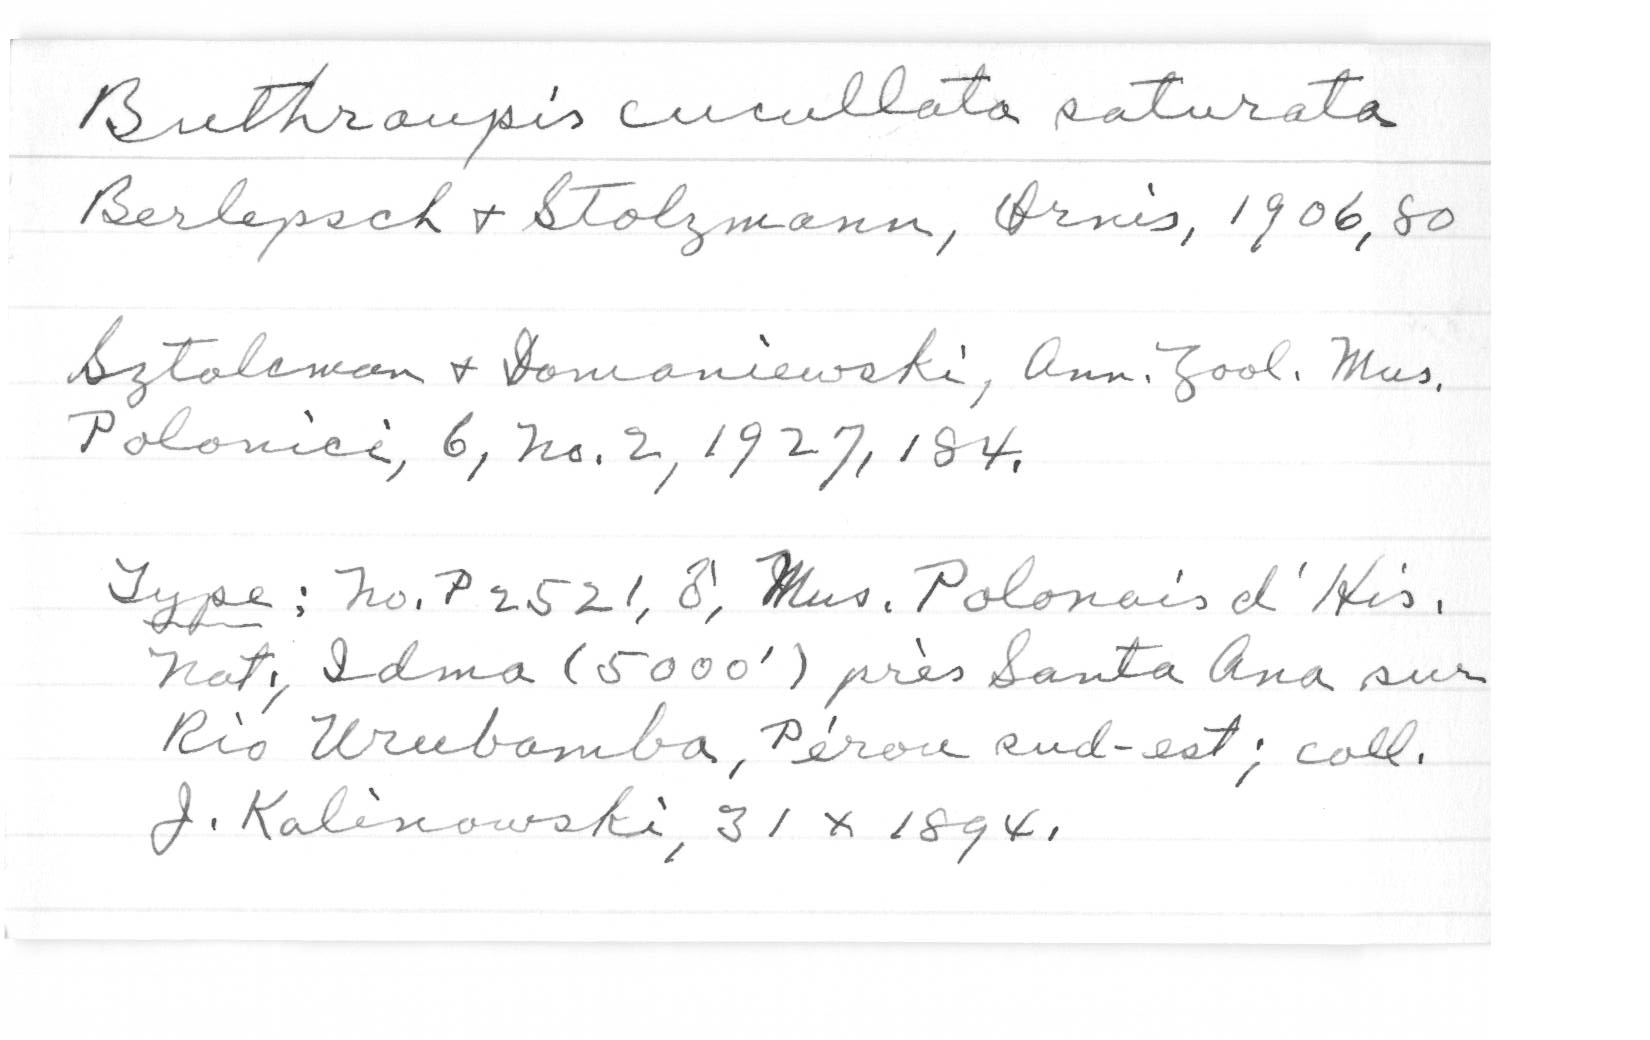 Buthraupis cucullata saturata
Berlepsch + Stolzmann, Ornis, 1906, 80
Sztolcman + Domaniewski, Ann. Zool. Mus.
Polonici, 6, no. 2, 1927, 184.
Type: No. P2521, ♂, Mus. Polonais d'His.
Nat., Idma (5000') près Santa Ana sur
Rio Urubamba, Pérou sud-est; coll.
J. Kalinowski, 31 x 1894.